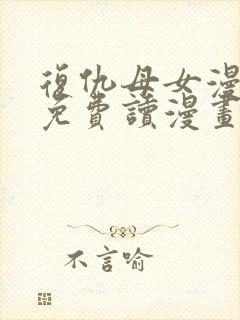 復仇母女漫
免費讀漫畫
不言喻